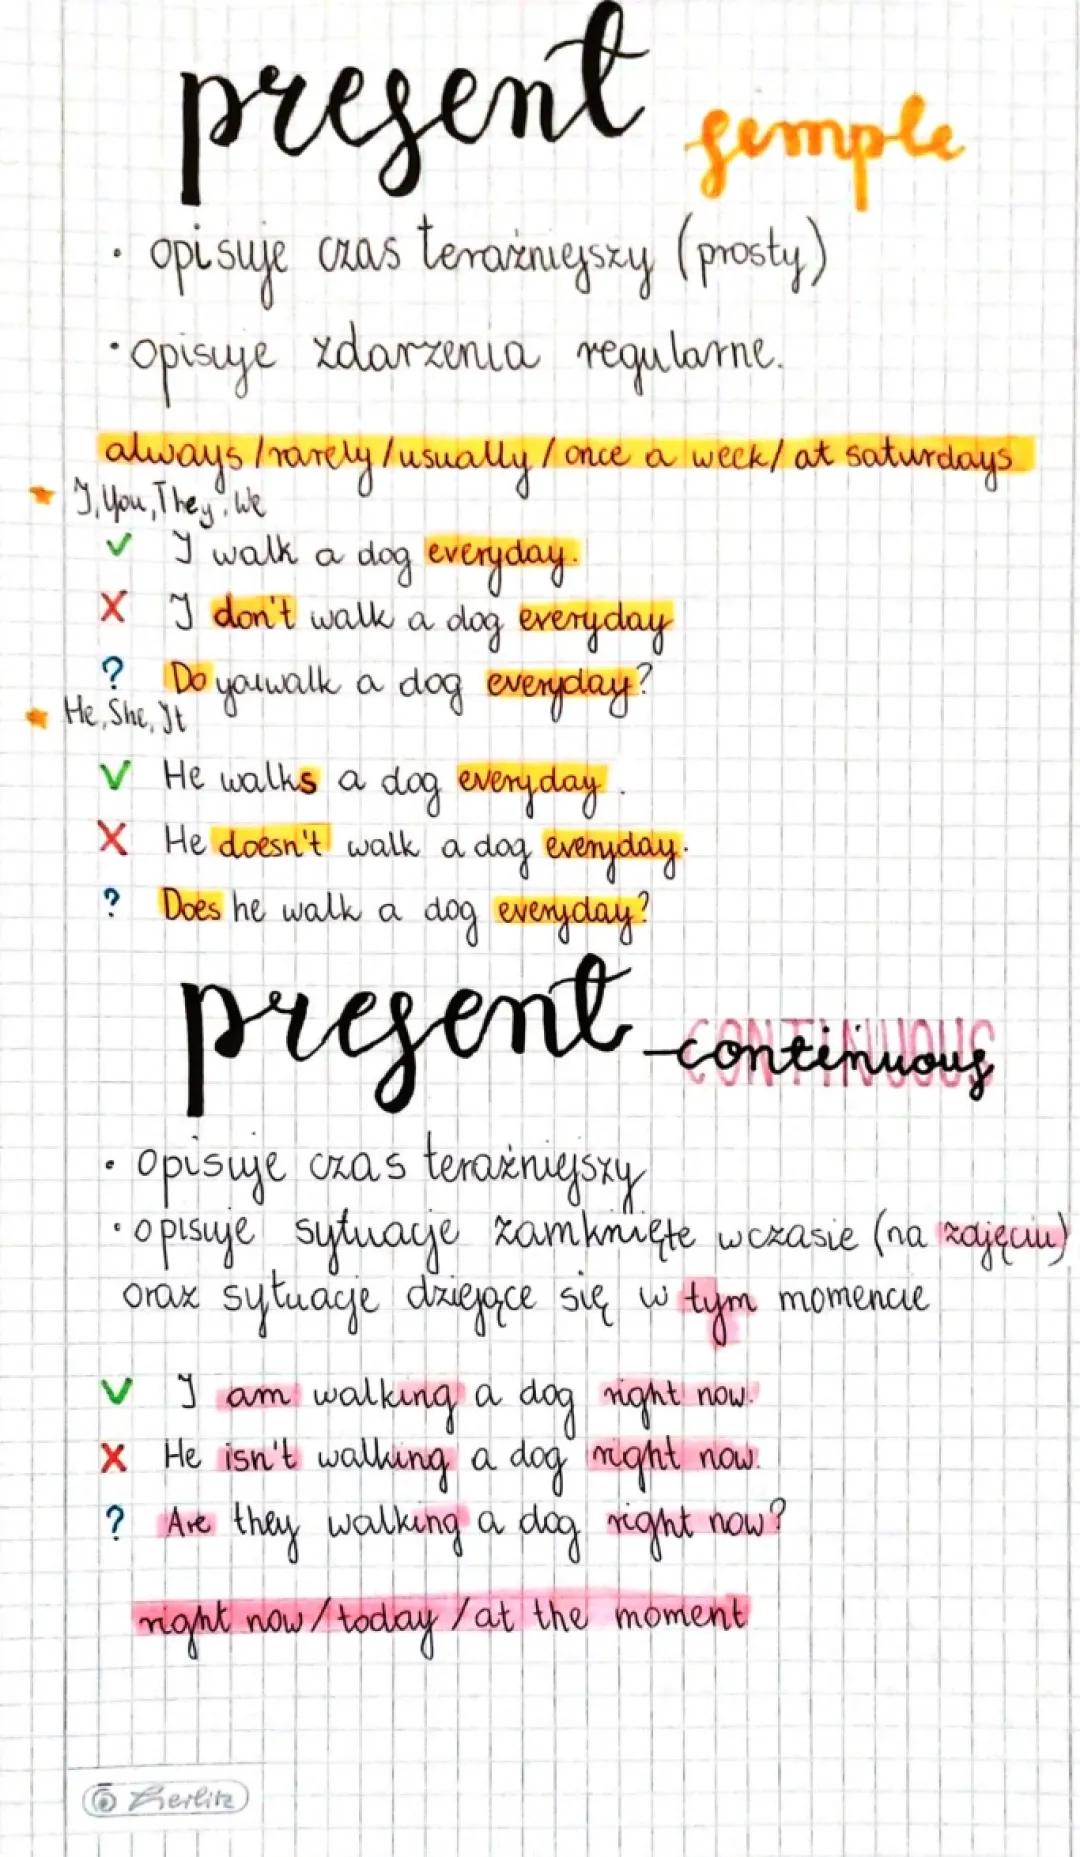 present semple
• opisuje czas teraźniejszy (prosty)
• opisuje zdarzenia regularne.
always/rarely/usually/once a week/at saturdays
I, You, They, We
✓ I walk a dog everyday.
X I don't walk a dog everyday
? Do you walk a dog everyday?
He, She, It
✓ He walks a dog everyday.
X He doesn't walk a dog everyday.
? Does he walk a dog everyday?
present continuous
CONTINUOUS
• opisuje czas teraźniejszy
• opisuje sytuacje zamknięte wczasie (na zdjęciu)
oraz sytuacje dziejące się w tym momencie
✓ I am walking a dog right now.
X He isn't walking a dog right now.
? Are they walking a dog right now?
right now/today/at the moment
Herlitz